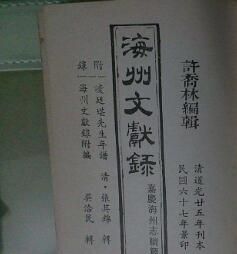 許喬林編輯
清道光廿五年刊本
民國六十七年景印
海州文獻錄
嘉慶海州志
附錄
凌廷堪先生年譜 清·張其錦 輯
海州文獻錄附編 吳 民 輯